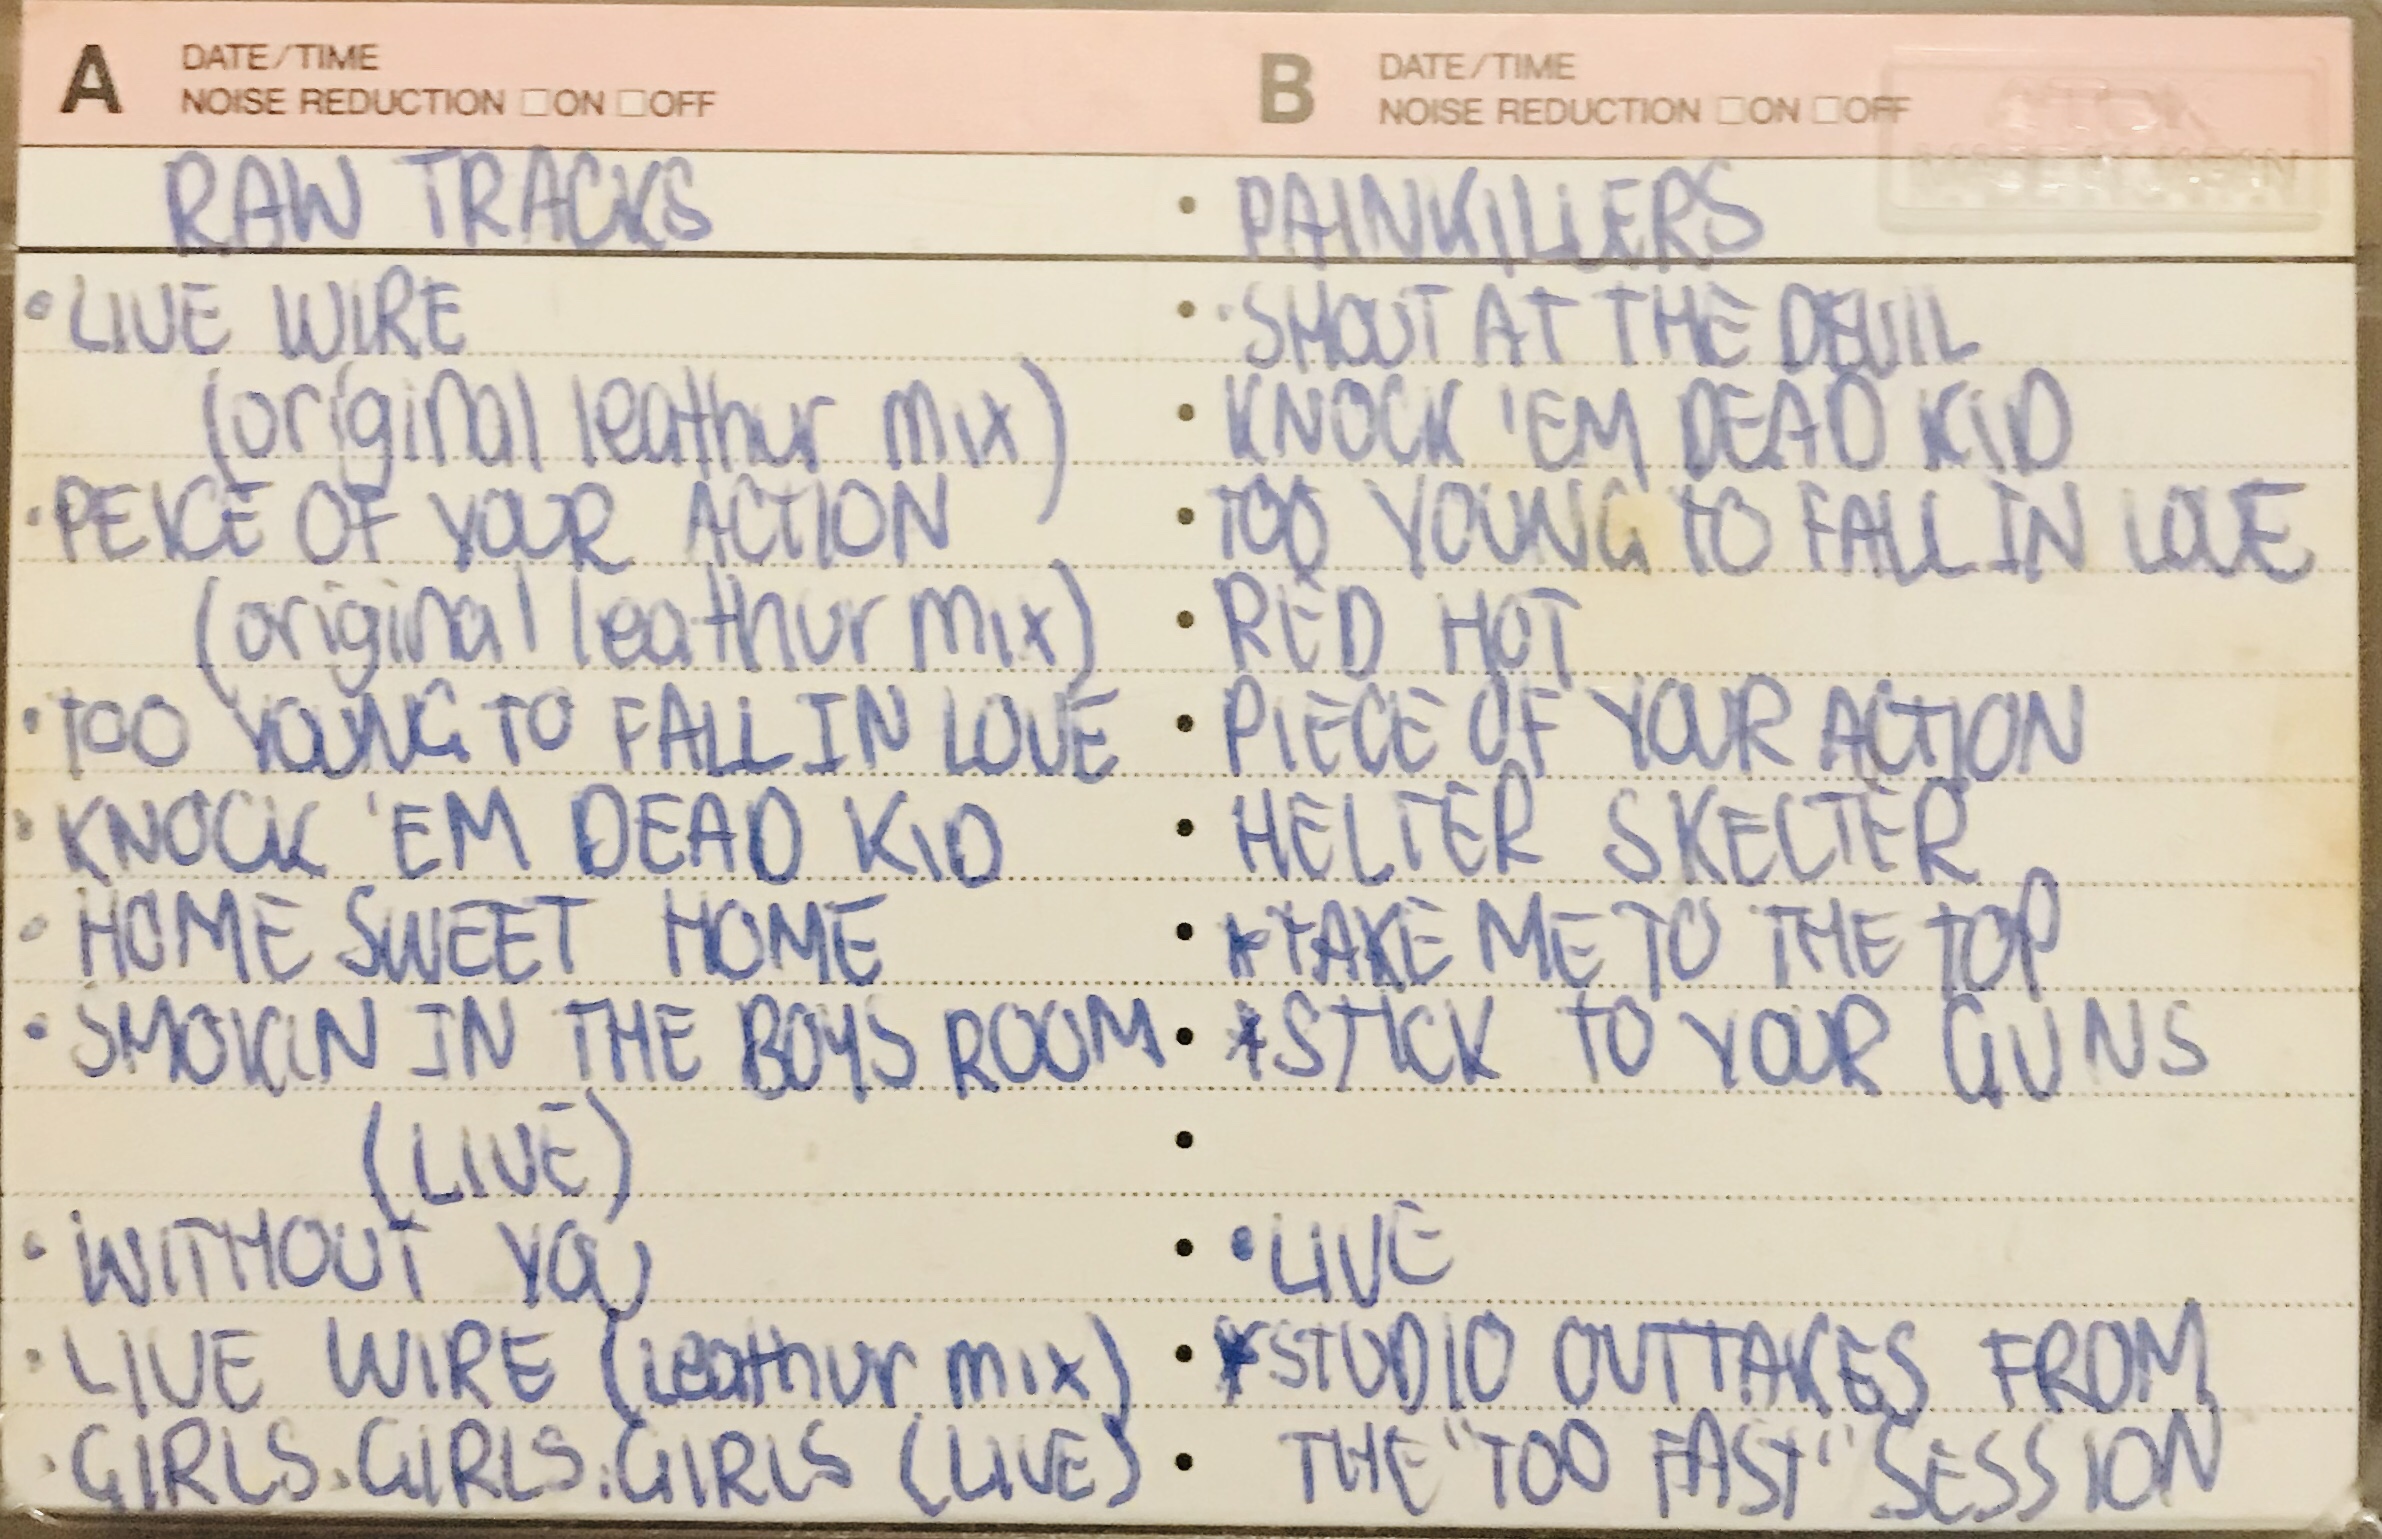 A DATE/TIME
NOISE REDUCTION □ON □OFF
RAW TRACKS
• LIVE WIRE
(original leathur mix)
• PEICE OF YOUR ACTION
(original leathur mix)
• TOO YOUNG TO FALL IN LOVE
• KNOCK 'EM DEAD KID
• HOME SWEET HOME
• SMOKIN IN THE BOYS ROOM
(LIVE)
• WITHOUT YOU
• LIVE WIRE (leathur mix)
• GIRLS.GIRLS.GIRLS (LIVE)
B DATE/TIME
NOISE REDUCTION □ON □OFF
TDK
• PAINKILLERS
• • SHOUT AT THE DEVIL
• KNOCK 'EM DEAD KID
• TOO YOUNG TO FALL IN LOVE
• RED HOT
• PIECE OF YOUR ACTION
• HELTER SKELTER
• * TAKE ME TO THE TOP
• * STICK TO YOUR GUNS
•
• • LIVE
• * STUDIO OUTTAKES FROM
• THE "TOO FAST" SESSION